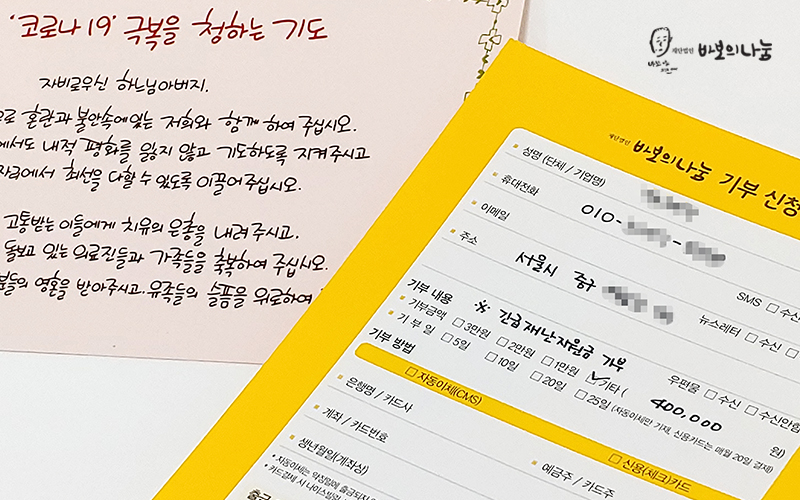 '코로나19' 극복을 청하는 기도
자비로우신 하느님아버지.
혼란과 불안속에있는 저희와 함께 하여 주십시오.
내적 평화를 잃지 않고 기도하도록 지켜주시고
최선을 다할 수 있도록 이끌어주십시오.
고통받는 이들에게 치유의 은총을 내려 주시고.
돌보고 있는 의료진들과 가족들을 축복하여 주십시오.
영혼을 받아주시고. 유족들의 슬픔을 위로하여
재단법인 바보의나눔
재단법인 바보의나눔 기부 신청
성명 (단체 / 기업명)
휴대전화 010-
이메일
주소 서울시 중구
SMS □ 수신
뉴스레터 □ 수신
우편물 □ 수신 □ 수신안함
기부 내용 ※ 긴급재난지원금 기부
기부금액 □ 3만원 □ 2만원 □ 1만원 ☑ 기타 ( 400,000 원)
기 부 일 □ 5일 □ 10일 □ 20일 □ 25일 (자동이체만 가능, 신용카드는 매월 20일 결제)
기부 방법
□ 자동이체(CMS) □ 신용(체크)카드
은행명 / 카드사
계좌 / 카드번호
생년월일(계좌상)
예금주 / 카드주
• 자동이체는 약정일에 출금되지
• 카드결제 시 나이스빌링